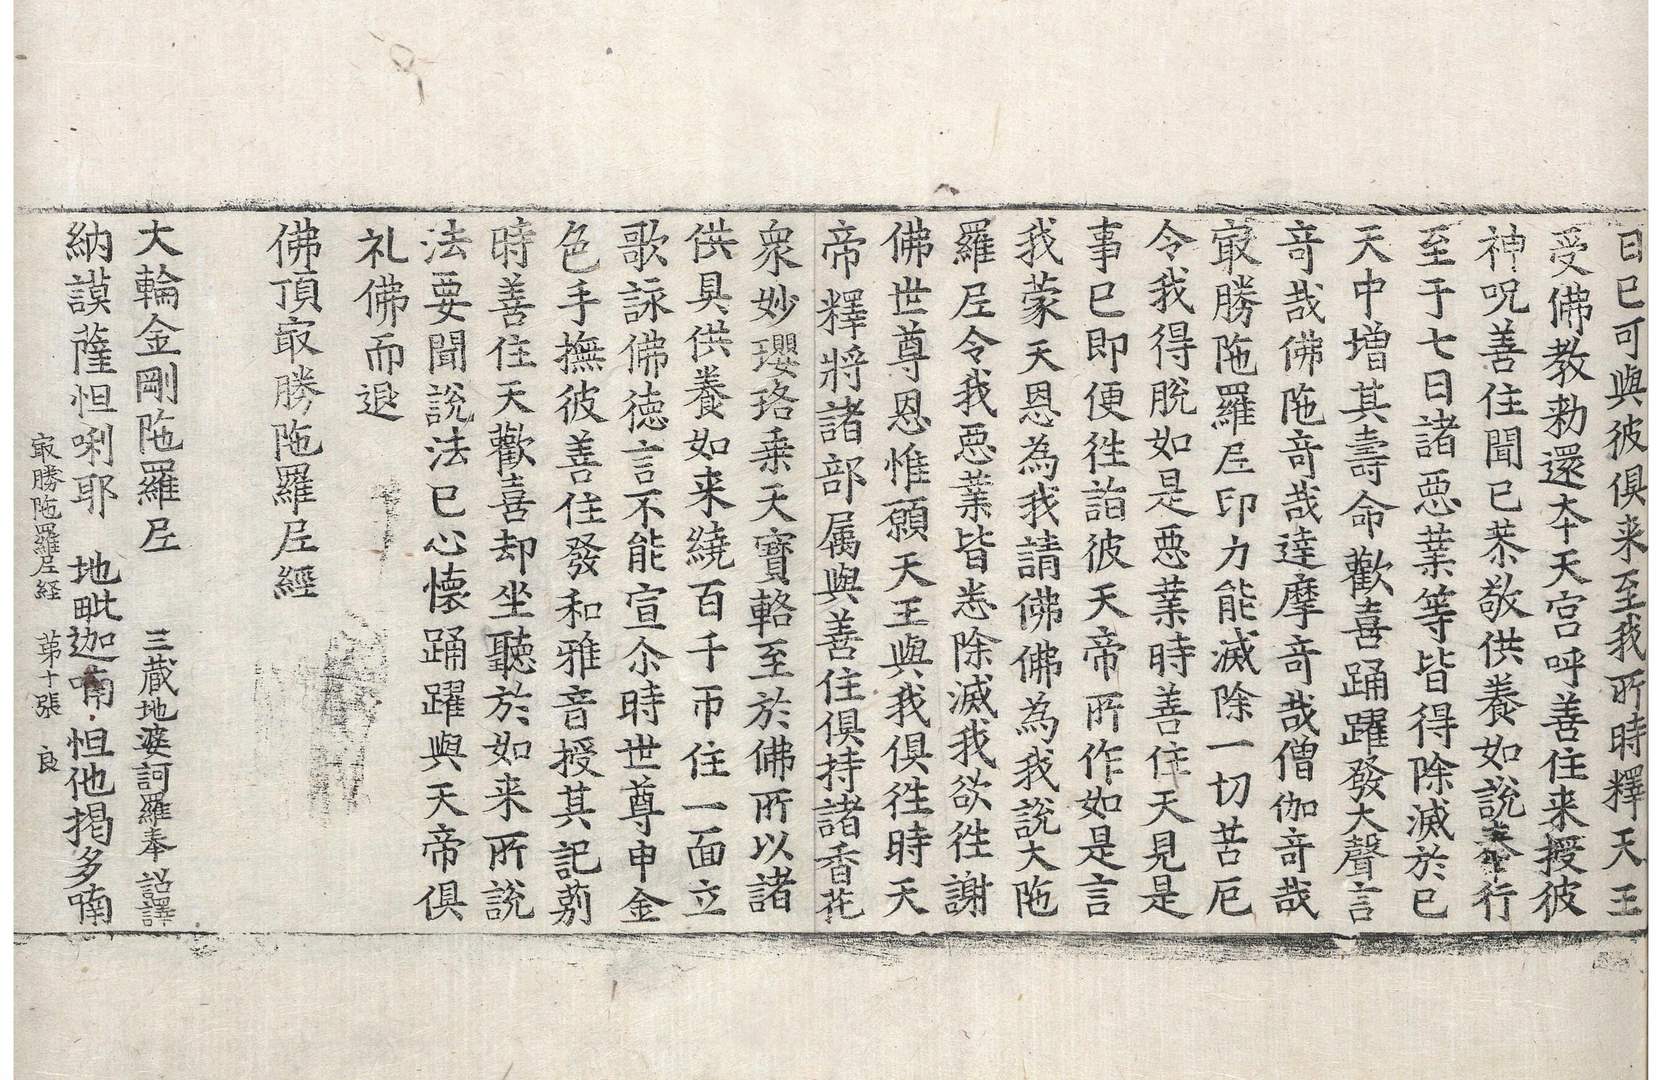 日已可與彼俱来至我所時釋天王
受佛教勑還夲天宮呼善住来授彼
神呪善住聞已恭敬供養如說奉行
至于七日諸惡業等皆得除滅於已
天中增其壽命歡喜踊躍發大聲言
竒哉佛陁竒哉達摩竒哉僧伽竒哉
㝡勝陁羅尼印力能滅除一切苦厄
令我得脫如是惡業時善住天見是
事已即便徃詣彼天帝所作如是言
我蒙天恩為我請佛佛為我說大陁
羅尼令我惡業皆悉除滅我欲徃謝
佛世尊恩惟願天王與我俱徃時天
帝釋將諸部属與善住俱持諸香花
衆妙瓔珞乗天寶輅至於佛所以諸
供具供養如来繞百千帀住一面立
歌詠佛德言不能宣尒時世尊申金
色手撫彼善住發和雅音授其記莂
時善住天歡喜却坐聽於如来所說
法要聞說法已心懐踊躍與天帝俱
礼佛而退
佛頂㝡勝陁羅尼經
大輪金剛陁羅尼 三藏地婆訶羅奉 詔譯
納謨薩怛唎耶 地毗迦喃 怛他揭多喃
㝡勝陁羅尼经 苐十張 良